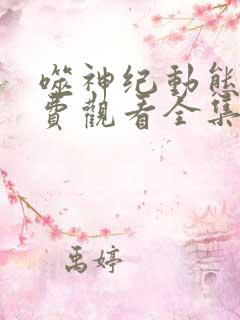 噬神纪動態
費觀看全集
禹婷